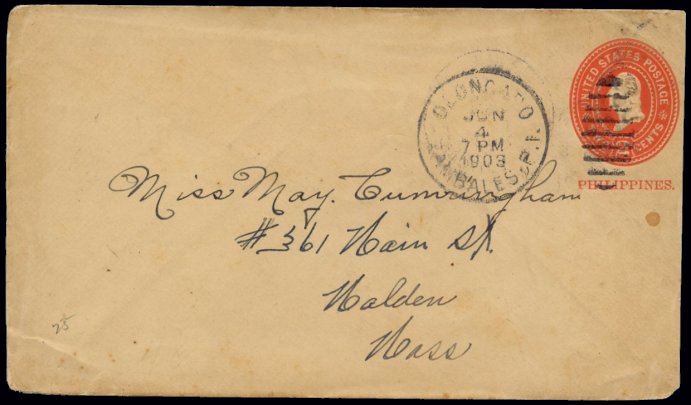 OLONGAPO
JUN
4
7 PM
1903
ZAMBALES, P.I.
UNITED STATES POSTAGE
CENTS
PHILIPPINES.
Miss May. Cunningham
#361 Main St.
Malden
Mass
25